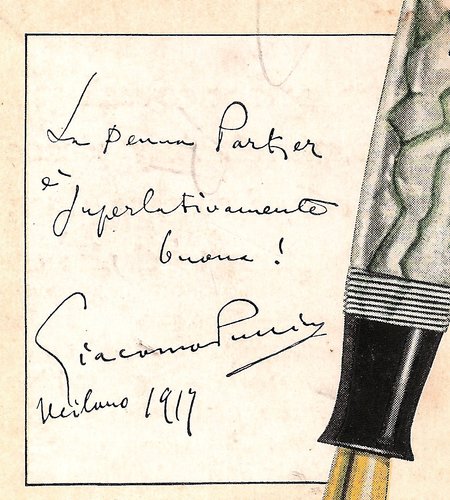 La penna Parker
è
superlativamente
buona!
Giacomo Puccini
Milano 1917